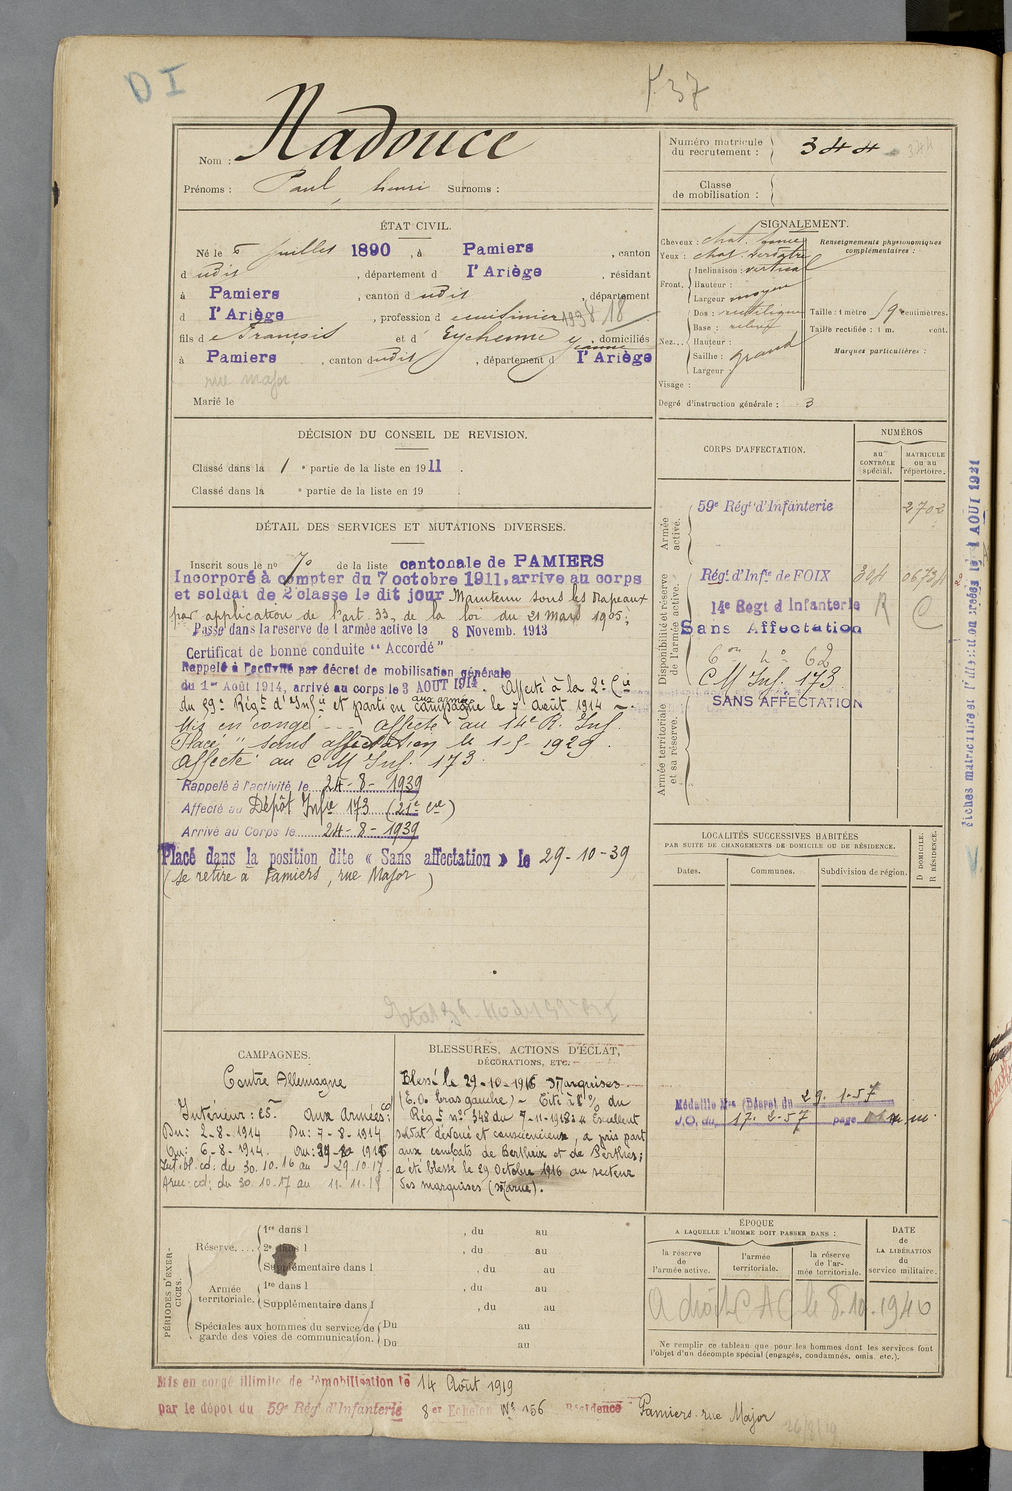 D I
F 37
Nom : Nadouce
Prénoms : Paul, henri Surnoms :
Numéro matricule du recrutement : 344
344
Classe de mobilisation :
ÉTAT CIVIL.
Né le 5 Juillet 1890, à Pamiers, canton
d udit, département d l'Ariège, résidant
à Pamiers, canton d udit, département
d l'Ariège, profession d cuisinier
fils de François et d Eychenne Jeanne, domiciliés
à Pamiers, canton dudit, département d l'Ariège
rue major
Marié le
SIGNALEMENT.
Cheveux : chat. foncé
Yeux : chat. verdâtre
Front, Inclinaison : vertical
Hauteur :
Largeur moyen
Nez... Dos : rectiligne
Base : relevé
Hauteur :
Saillie : grand
Largeur
Visage :
Degré d'instruction générale : 3
Renseignements physionomiques complémentaires :
Taille : 1 mètre centimètres.
Taille rectifiée : 1 m. cent.
Marques particulières :
DÉCISION DU CONSEIL DE REVISION.
Classé dans la 1e partie de la liste en 1911.
Classé dans la e partie de la liste en 19 .
DÉTAIL DES SERVICES ET MUTATIONS DIVERSES.
Inscrit sous le no 70 de la liste cantonale de PAMIERS
Incorporé à compter du 7 octobre 1911, arrivé au corps
et soldat de 2e classe le dit jour Maintenu sous les drapeaux
par application de l'art. 33, de la loi du 21 Mars 1905;
Passé dans la reserve de l'armée active le 8 Novemb. 1913
Certificat de bonne conduite "Accordé"
Rappelé à l'activité par décret de mobilisation générale
du 1er Août 1914, arrivé au corps le 3 AOUT 1914. Affecté à la 2e Cie
du 59e Régt d'Infie et parti en campagne le 7 août 1914 ~.
aux armées
Mis en congé -- affecté au 14e R. Inf.
Placé "sans affectation le 1-5-1929.
Affecté au C M Inf. 173.
Rappelé à l'activité le 24-8-1939
Affecté au Dépôt Infie 173 (21e Cie)
Arrivé au Corps le 24-8-1939
Placé dans la position dite « Sans affectation » le 29-10-39
(se retire à Pamiers, rue Major)
CORPS D'AFFECTATION.
NUMÉROS
AU CONTRÔLE spécial.
MATRICULE ou au répertoire.
Armée active.
59e Régt d'Infanterie 2702
Disponibilité et réserve de l'armée active.
Régt d'Infie de FOIX 304
14e Regt d Infanterie R C
Sans Affectation
C M Inf. 173
SANS AFFECTATION
Armée territoriale et sa réserve.
LOCALITÉS SUCCESSIVES HABITÉES
PAR SUITE DE CHANGEMENTS DE DOMICILE OU DE RÉSIDENCE.
Dates.
Communes.
Subdivision de région.
D DOMICILE.
R RÉSIDENCE.
Médaille Mre (Décret du 29-1-57
J.O. du 17-2-57 page
CAMPAGNES.
Contre Allemagne
Intérieur : CS. aux Armées : CD
Du : 2-8-1914 Du : 7-8-1914
Au : 6-8-1914.
Int. bl. cd : du 30.10.16 au 29.10.17
Arm : cd : du 30.10.17 au 11.11.18
BLESSURES, ACTIONS D'ÉCLAT,
DÉCORATIONS, ETC.
Blessé le 29-10-1916 Marquises.
(E. O. bras gauche) - Cité à l'O/ du
Régt no 348 du 7-11-1918 : « Excellent
soldat dévoué et consciencieux, a pris part
aux combats de Berthaux et de Perthes;
a été blessé le 29 Octobre 1916 au secteur
des marquises (Marne).
PÉRIODES D'EXERCICES.
Réserve.... 1re dans l , du au
2e dans l , du au
Supplémentaire dans l , du au
Armée territoriale. 1re dans l , du au
Supplémentaire dans l , du au
Spéciales aux hommes du service de garde des voies de communication. Du au
Du au
ÉPOQUE
A LAQUELLE L'HOMME DOIT PASSER DANS :
la réserve de l'armée active.
l'armée territoriale.
la réserve de l'armée territoriale.
DATE de LA LIBÉRATION du service militaire.
A droit C A C le 8.10.1940
Ne remplir ce tableau que pour les hommes dont les services font
l'objet d'un décompte spécial (engagés, condamnés, omis, etc.).
Mis en congé illimité de démobilisation le 14 Août 1919
par le dépôt du 59e Régt d'Infanterie 8e Echelon No 156 Résidence Pamiers. rue Major
26/8/19